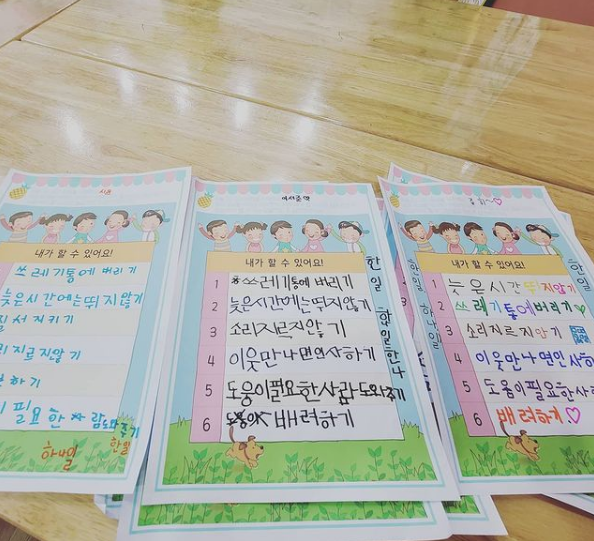 내가 할 수 있어요!
쓰레기통에 버리기
늦은시간에는뛰지않기
질서지키기
리지르지않기
하기
필요한사람도와주기
한일
하나일
내가 할 수 있어요!
1 쓰레기통에 버리기
2 늦은시간에는뛰지않기
3 소리지르지않기
4 이웃만나면인사하기
5 도움이필요한사람도와주기
6 배려하기
한일
하나일
내가 할 수 있어요!
1 늦은시간뛰지않기
2 쓰레기통에버리기
3 소리지르지않기
4 이웃만나면인사하
5 도움이필요한사
6 배려하기♡
한일
하나일